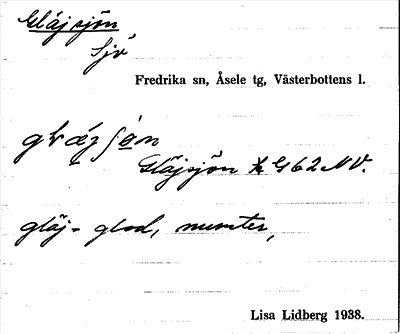 Gläjsjön
Sjö
Fredrika sn, Åsele tg, Västerbottens l.
Gläjsjön k G62NV.
gläj- glad, munter,
Lisa Lidberg 1938.